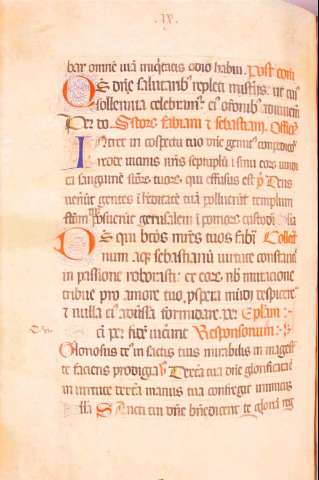 IX
bar omnẽ uiã iniq̃tatis odio habui. Post com̃
Os dñe salutarib' repleti mist'iis: ut cui'
sollennia celebram': ei' orõnib' adiuuem̃
Per do. Sctõrũ fabiani ⁊ sebastiani. Offic̃
Intret in cospectu tuo dñe gemit' conpeditoꝝ
redde uicinis nr̃is septuplũ ĩ sinu eorũ uindi
ca sanguinẽ sctõrũ tuorũ, qui effusus est. p̃s Deus
uenerũt gentes ĩ hereditatẽ tuã polluerũt templum
sctm̃ posuerũt ierusalem ĩ pomorũ custodi
Ds qui btõs mr̃es tuos fabi Collect
num atq̃ sebastianũ uirtute constantie
in passione roborasti: ex eorũ nb' imitacione
tribue pro amore tuo, p̃spera mũdi despicere
⁊ nulla ei' aduersa formidare. per. Epl'am:
Sc̃i per fidẽ uicerunt Responsorium:
Gloriosus de' in sanctis suis mirabilis in magest
te faciens prodigia ℣ Dextera tua dñe glorificata ẽ
in uirtute dextera manus tua confregit inimicos
Alla Sancti tui dñe benedicent te gloriã reg